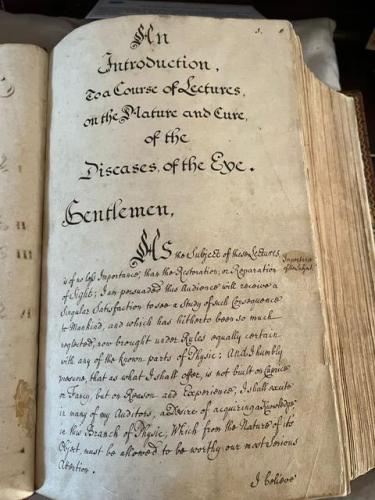 An
Introduction,
To a Course of Lectures,
on the Nature and Cure,
of the
Diseases, of the Eye.
Gentlemen,
As the Subject of these Lectures
Importance
of the Subject.
is of no less Importance, than the Restoration, or Reparation
of Sight; I am persuaded this Audience will receive a
Singular Satisfaction to see a Study of such Consequence
to Mankind, and which has hitherto been so much
neglected, now brought under Rules equally certain
with any of the known parts of Physic; And I humbly
presume, that as what I shall offer, is not built on Caprice
or Fancy, but on Reason and Experience, I shall excite
in many of my Auditors, a Desire of acquiring a Knowledge
in this Branch of Physic, Which from the Nature of it's
Object, must be allowed to be worthy our most Serious
Attention.
I believe